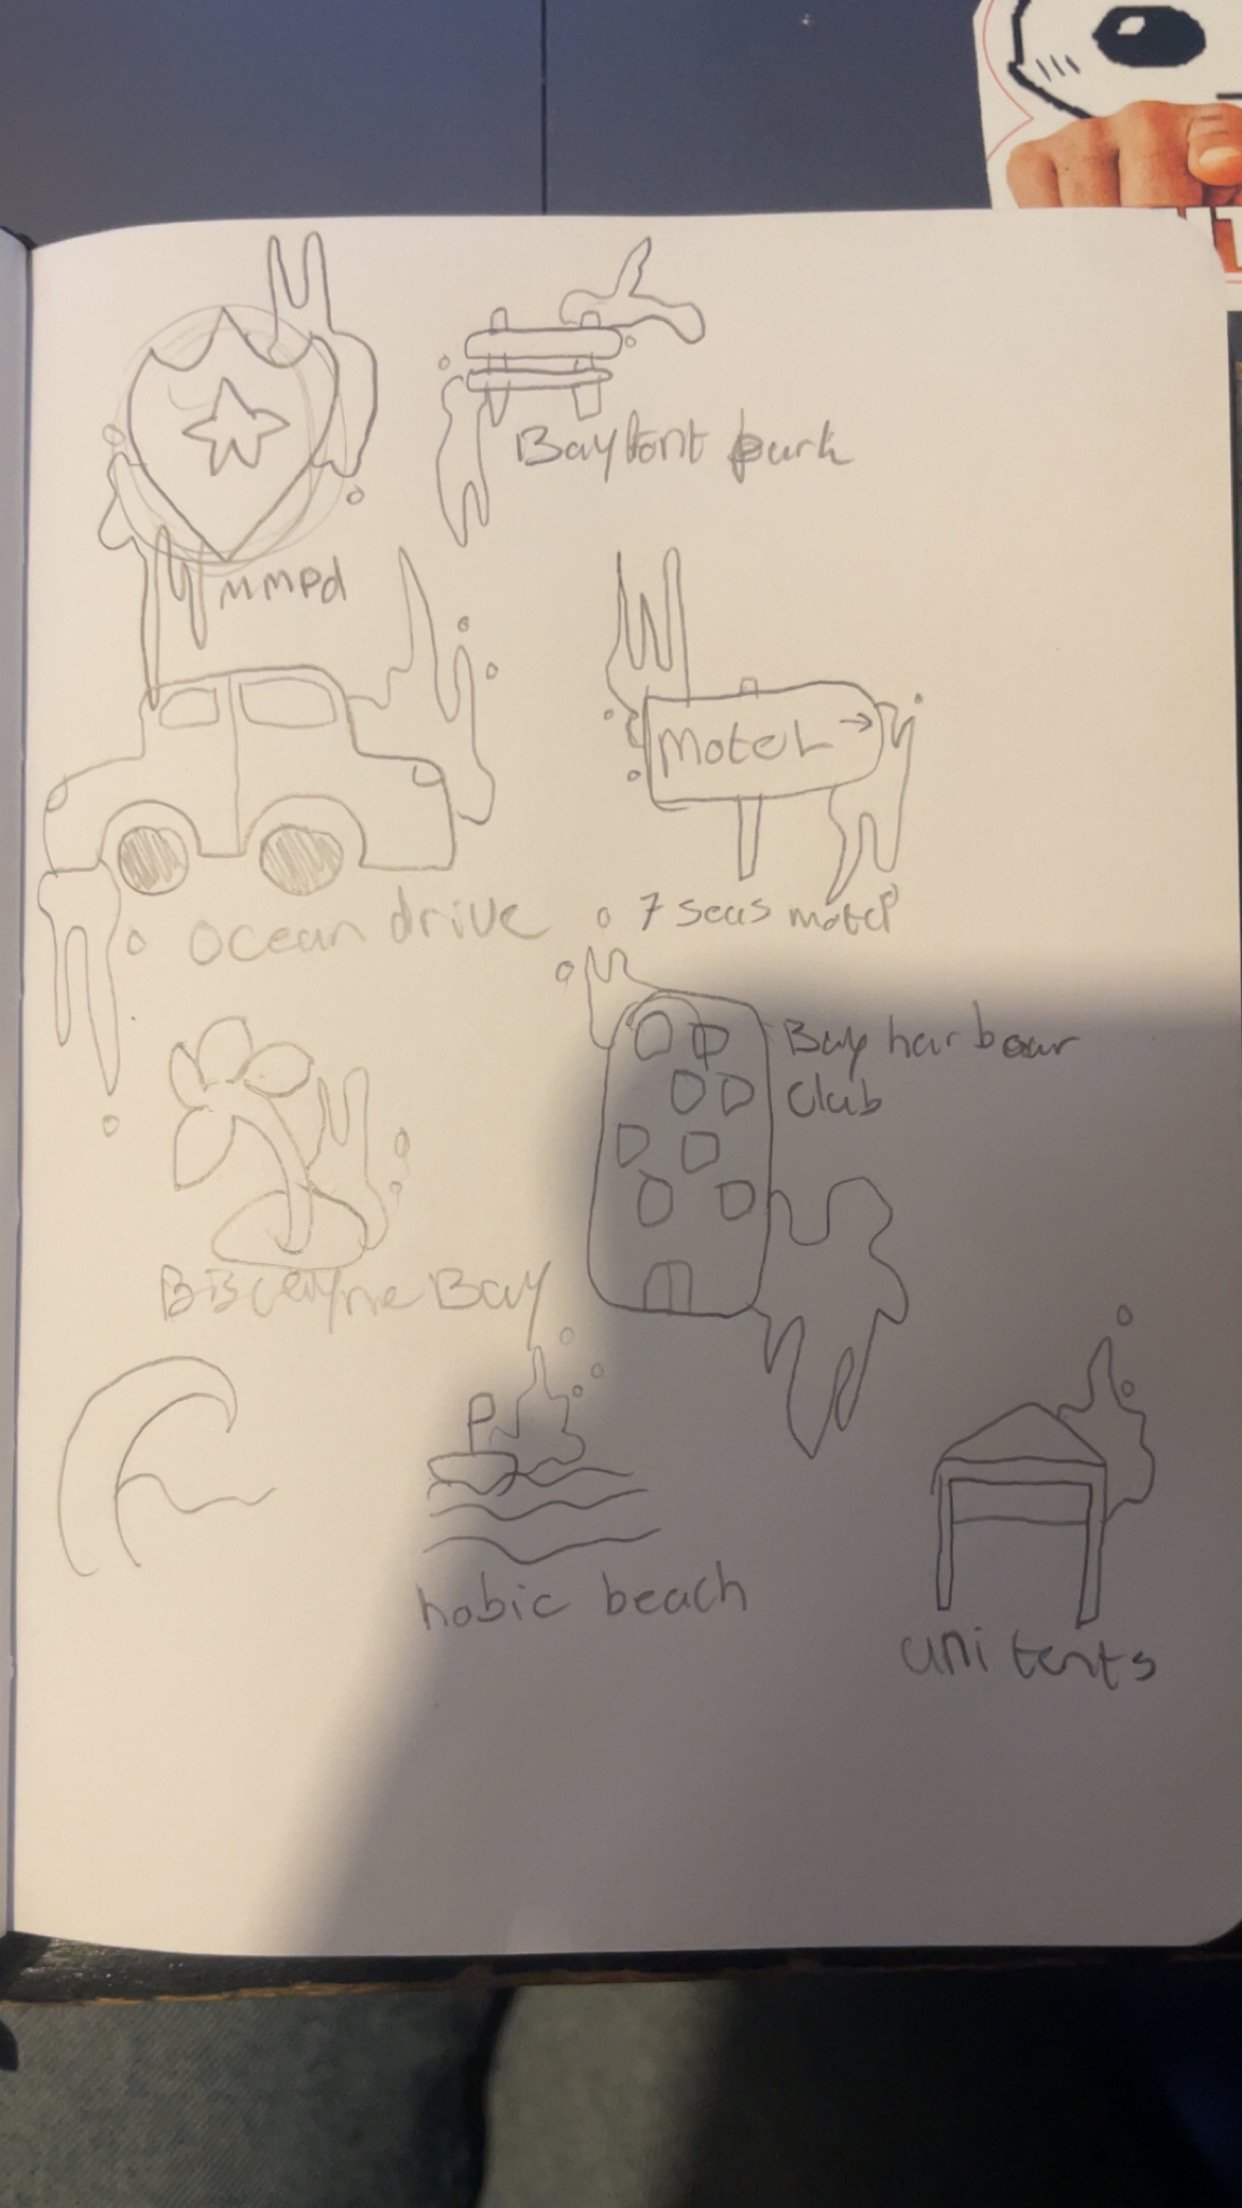 Bayfont park
mmpd
Motel →
ocean drive
7 seas motel
Bay harbour
Club
Biscayne Bay
hobic beach
uni tents